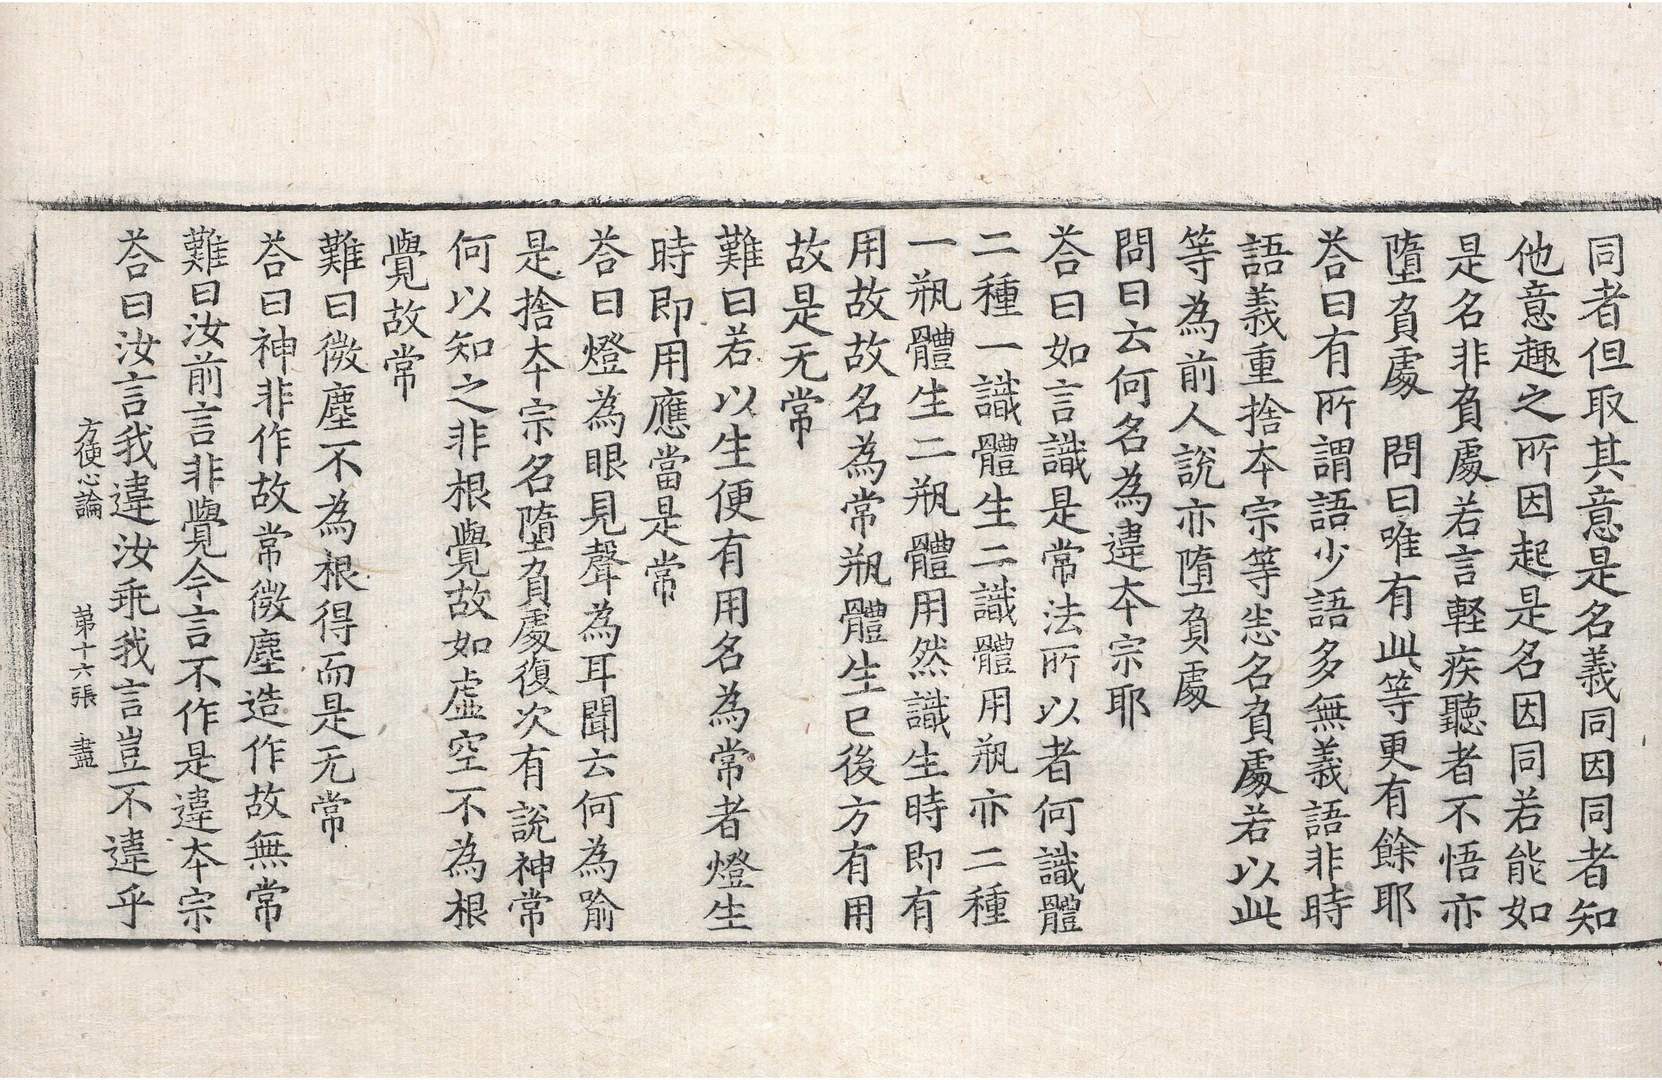 同者但取其意是名義同因同者知
他意趣之所因起是名因同若能如
是名非負處若言輕疾聽者不悟亦
墮負處　問曰唯有此等更有餘耶
荅曰有所謂語少語多無義語非時
語義重捨本宗等悉名負處若以此
等為前人說亦墮負處
問曰云何名為違本宗耶
荅曰如言識是常法所以者何識體
二種一識體生二識體用瓶亦二種
一瓶體生二瓶體用然識生時即有
用故故名為常瓶體生已後方有用
故是无常
難曰若以生便有用名為常者燈生
時即用應當是常
荅曰燈為眼見聲為耳聞云何為喻
是捨本宗名墮負處復次有說神常
何以知之非根覺故如虛空不為根
覺故常
難曰微塵不為根得而是无常
荅曰神非作故常微塵造作故無常
難曰汝前言非覺今言不作是違本宗
荅曰汝言我違汝乖我言豈不違乎
方便心論　第十六張　盡